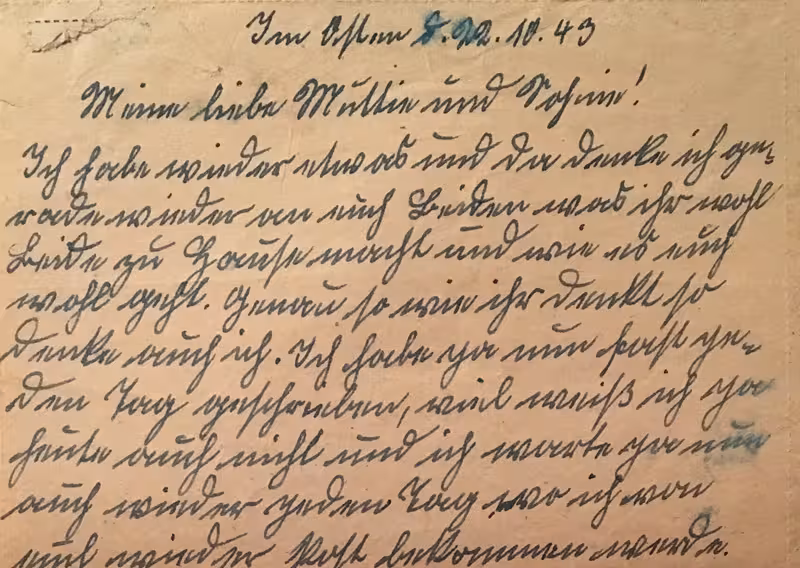 Im Osten d. 22.10.43
Meine liebe Muttie und Sohnie!
Ich habe wieder etwas und da denke ich ge-
rade wieder an euch Beiden was ihr wohl
Beide zu Hause macht und wie es euch
wohl geht. Genau so wie ihr denkt so
denke auch ich. Ich habe ja nun fast je-
den Tag geschrieben, viel weiß ich ja
heute auch nicht und ich warte ja nun
auch wieder jeden Tag wo ich von
euch wieder Post bekommen werde.